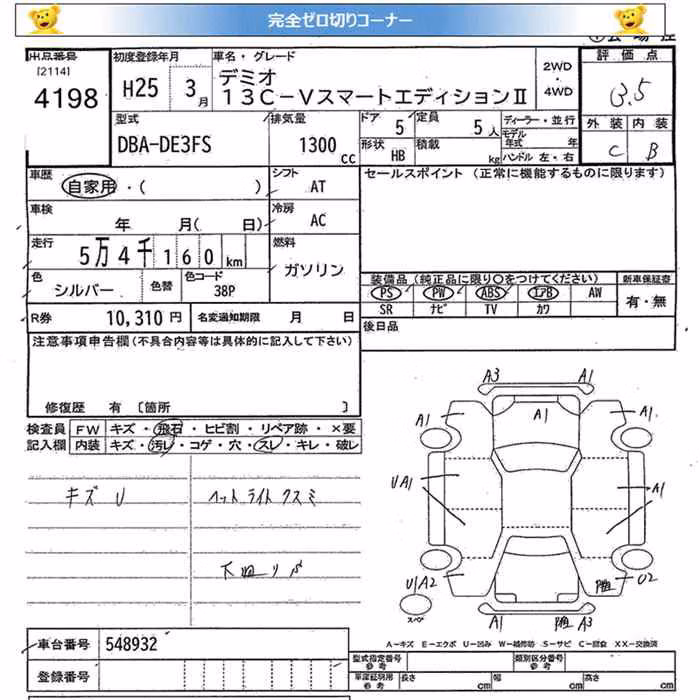 完全ゼロ切りコーナー
出品番号 初度登録年月 車名・グレード 評価点
[2114]
4198 H25 3月 デミオ
13C-VスマートエディションⅡ
2WD
・
4WD
3.5
外装 内装
C B
型式 排気量 ドア 定員 ディーラー・並行
DBA-DE3FS 1300 cc 5 5人 モデル年式 年
形状 積載 ハンドル 左・右
HB kg
車歴 シフト セールスポイント(正常に機能するものに限ります)
自家用・( ) AT
車検 冷房
年 月( 日) AC
走行 燃料
5万4千160km ガソリン
色 色替 色コード
シルバー 38P
装備品(純正品に限り○をつけてください) 新車保証書
PS PW ABS エアB AW 有・無
SR ナビ TV カワ
R券 10,310円 名変通知期限 月 日 後日品
注意事項申告欄(不具合内容等は具体的に記入して下さい)
修復歴 有 〔箇所 〕
検査員 FW キズ・飛石・ヒビ割・リペア跡・×要
記入欄 内装 キズ・汚レ・コゲ・穴・スレ・キレ・破レ
キズ U ヘットライトクスミ
A3 A1
A1 A1 A1
UA1 A1
U/A2 U2
A1 A3
A-キズ E-エクボ U-凹み W-補修跡 S-サビ C-腐食 XX-交換済
車台番号 548932
登録番号
型式指定番号 類別区分番号
参考 参考
車庫証明用 長さ 幅 高さ
参考 cm cm cm